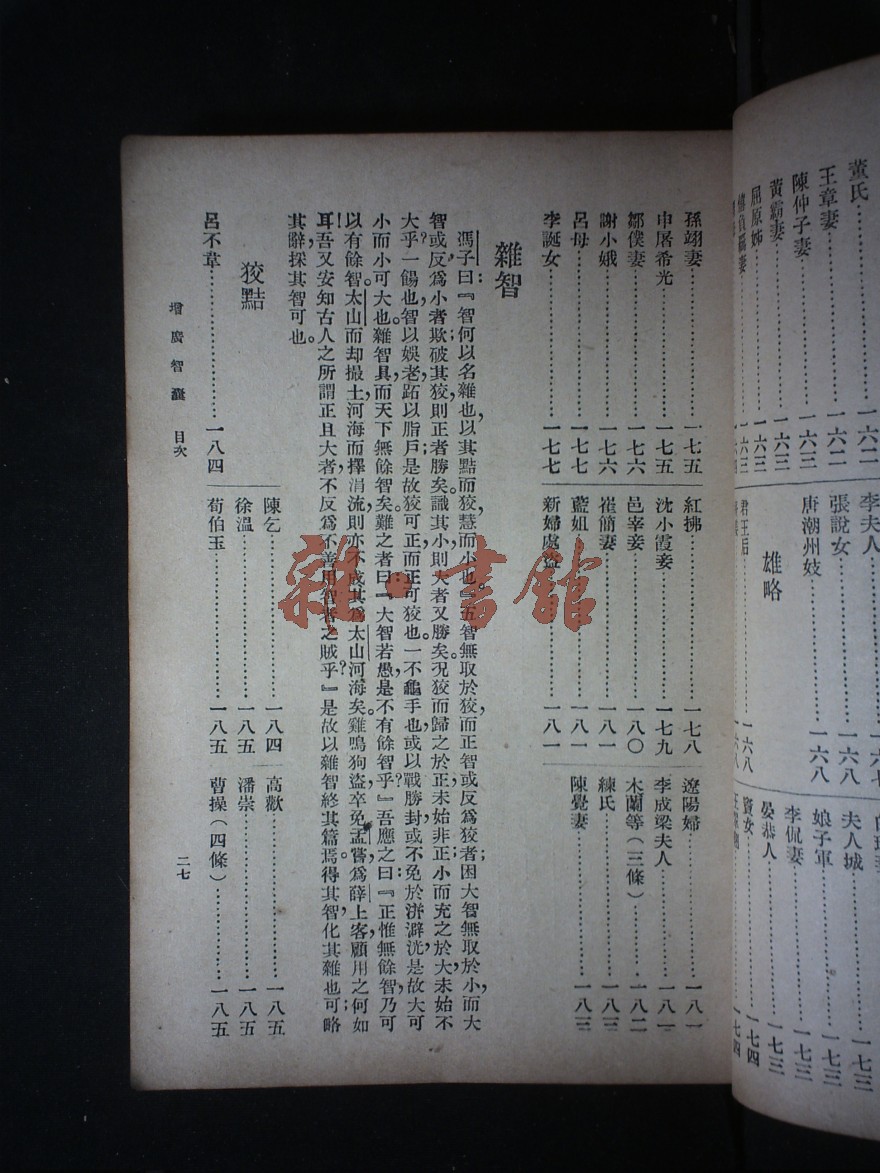 董氏……一六二
王章妻……一六二
陳仲子妻……一六二
黃霸妻……一六三
屈原姊……一六三
僖負羈妻……一六三
李夫人……一六七
張說女……一六八
唐潮州妓……一六八
雄略
君王后……一六八
夫人城……一七三
娘子軍……一七三
李侃妻……一七三
晏恭人……一七三
竇女……一七四
孫翊妻……一七五
申屠希光……一七五
鄒僕妻……一七六
謝小娥……一七六
呂母……一七七
李誕女……一七七
紅拂……一七八
沈小霞妾……一七九
邑宰妾……一八〇
崔簡妻……一八一
藍姐……一八一
新婦處盜……一八一
遼陽婦……一八一
李成梁夫人……一八一
木蘭等（三條）……一八二
練氏……一八三
陳覺妻……一八三
雜智
馮子曰：『智何以名雜也，以其黠而狡，慧而小也。』五智無取於狡，而正智或反爲狡者困；大智無取於小，而大
智或反爲小者欺。破其狡，則正者勝矣；識其小，則大者又勝矣。況狡而歸之於正，未始非正；小而充之於大，未始不
大乎？一餳也，智以娛老，跖以脂戶，是故狡可正，而正可狡也。一不龜手也，或以戰勝封，或不免於洴澼洸，是故大可
小，而小可大也。雜智具，而天下無餘智矣。難之者曰：『大智若愚，是不有餘智乎？』吾應之曰：『正惟無餘智，乃可
以有餘智。太山而却撮土，河海而擇涓流，則亦不成其爲太山河海矣。雞鳴狗盜，卒免孟嘗，爲薛上客，顧用之何如
耳！吾又安知古人之所謂正且大者，不反爲不善用智者之賊乎？』是故以雜智終其篇焉。得其智，化其雜也可；略
其辭，採其智可也。
狡黠
呂不韋……一八四
陳乞……一八四
徐溫……一八五
荀伯玉……一八五
高歡……一八五
潘崇……一八五
曹操（四條）……一八五
增廣智囊　目次
二七
雜·書館